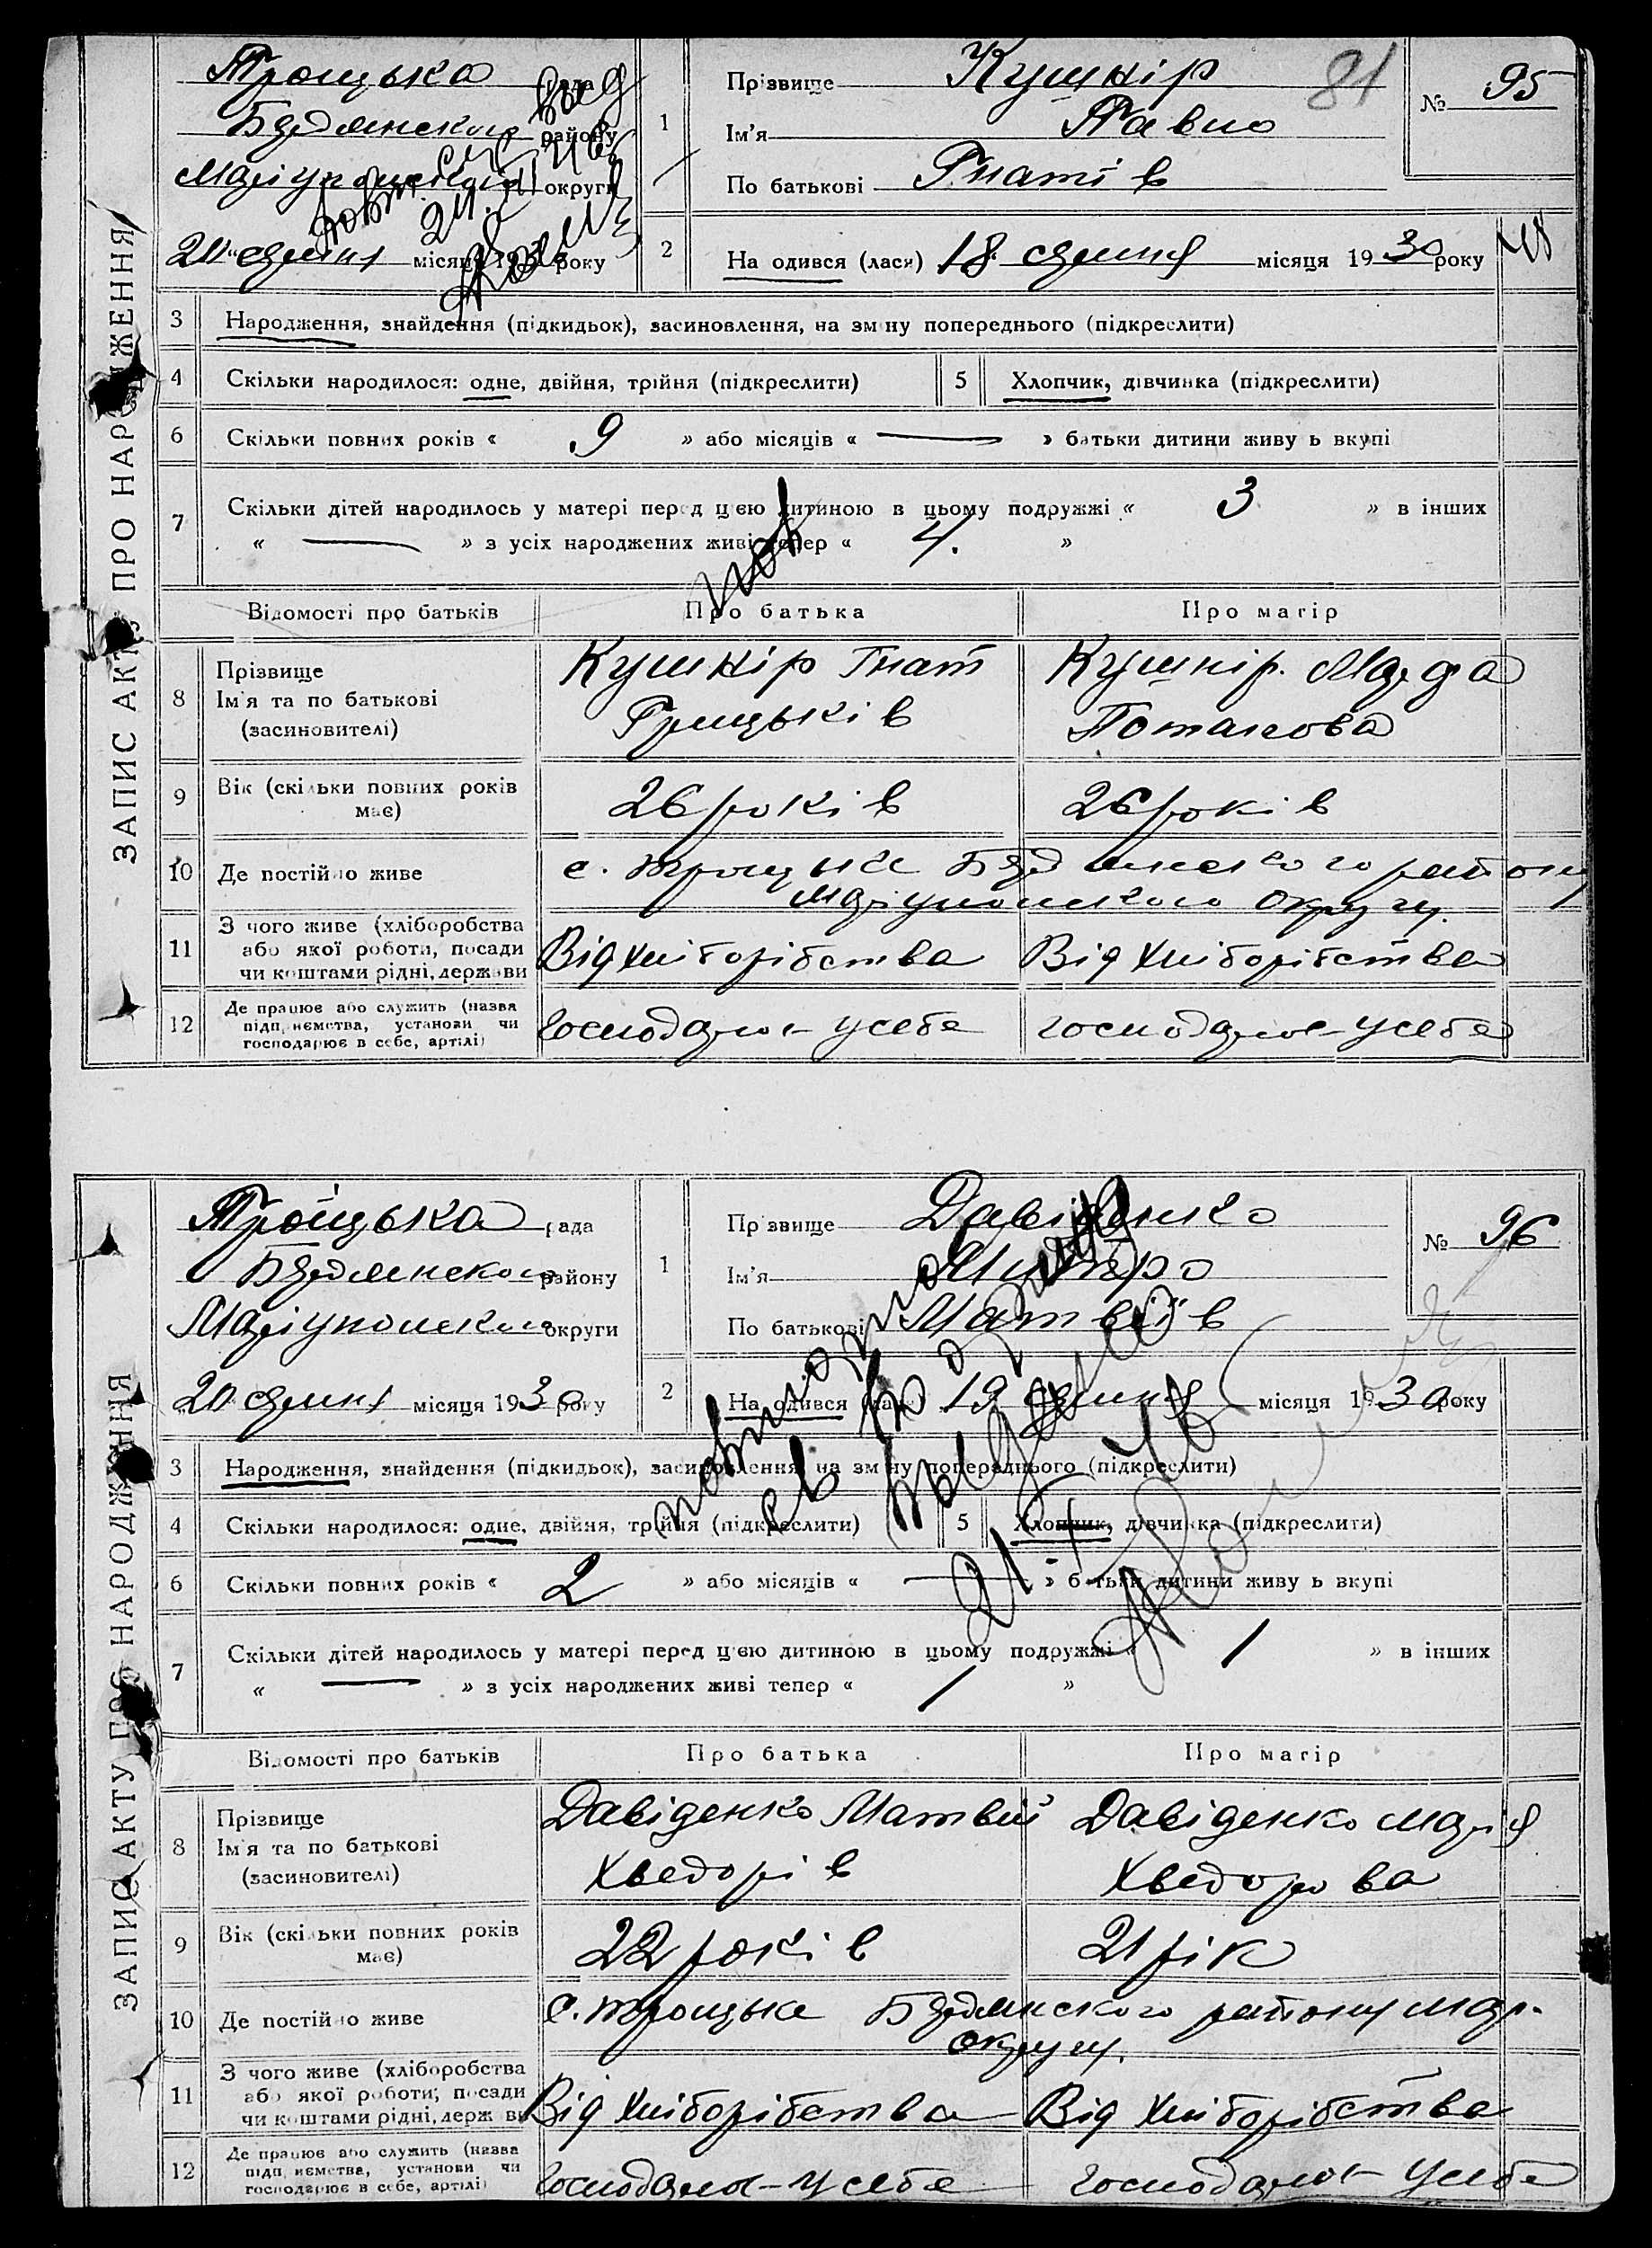 ЗАПИС АКТУ ПРО НАРОДЖЕННЯ
Троїцька рада
Бердянского району
Маріупольского округи
20 серпня місяця 1930 року
1
Прізвище Кушнір
Ім'я Павло
По батькові Гнатів
81
№ 95
2
Народився (лася) 18 серпня місяця 1930 року
3 Народження, знайдення (підкидьок), засиновлення, на зміну попереднього (підкреслити)
4 Скільки народилося: одне, двійня, трійня (підкреслити) 5 Хлопчик, дівчинка (підкреслити)
6 Скільки повних років « 9 » або місяців « — » батьки дитини живуть вкупі
7 Скільки дітей народилось у матері перед цією дитиною в цьому подружжі « 3 » в інших
« — » з усіх народжених живі тепер « 4. »
Відомості про батьків Про батька Про матір
8 Прізвище
Ім'я та по батькові
(засиновителі)
Кушнір Гнат
Грицьків
Кушнір
Потапова
9 Вік (скільки повних років має)
26 років 26 років
10 Де постійно живе
с. Троїцьке Бердянского району
Маріупольского округу.
11 З чого живе (хліборобства
або якої роботи, посади
чи коштами рідні, держави
Від хліборібства Від хліборібства
12 Де працює або служить (назва
підприємства, установи чи
господарює в себе, артілі)
Господарює у себе Господарює у себе
ЗАПИС АКТУ ПРО НАРОДЖЕННЯ
Троїцька рада
Бердянского району
Маріупольского округи
20 серпня місяця 1930 року
1
Прізвище Давіденко
Ім'я Митро
По батькові Матвіїв
№ 96
2
Народився (лася) 19 серпня місяця 1930 року
повторное
св. о рожд
выдано
3 Народження, знайдення (підкидьок), засиновлення, на зміну попереднього (підкреслити)
4 Скільки народилося: одне, двійня, трійня (підкреслити) 5 Хлопчик, дівчинка (підкреслити)
6 Скільки повних років « 2 » або місяців « — » батьки дитини живуть вкупі
7 Скільки дітей народилось у матері перед цією дитиною в цьому подружжі « 1 » в інших
« — » з усіх народжених живі тепер « 1 »
Відомості про батьків Про батька Про матір
8 Прізвище
Ім'я та по батькові
(засиновителі)
Давіденко Матвій
Хведорів
Давіденко Марія
Хведорова
9 Вік (скільки повних років має)
22 років 21 рік
10 Де постійно живе
с. Троїцьке Бердянского району Мар.
округу.
11 З чого живе (хліборобства
або якої роботи, посади
чи коштами рідні, держави
Від хліборібства Від хліборібства
12 Де працює або служить (назва
підприємства, установи чи
господарює в себе, артілі)
Господарює у себе Господарює у себе